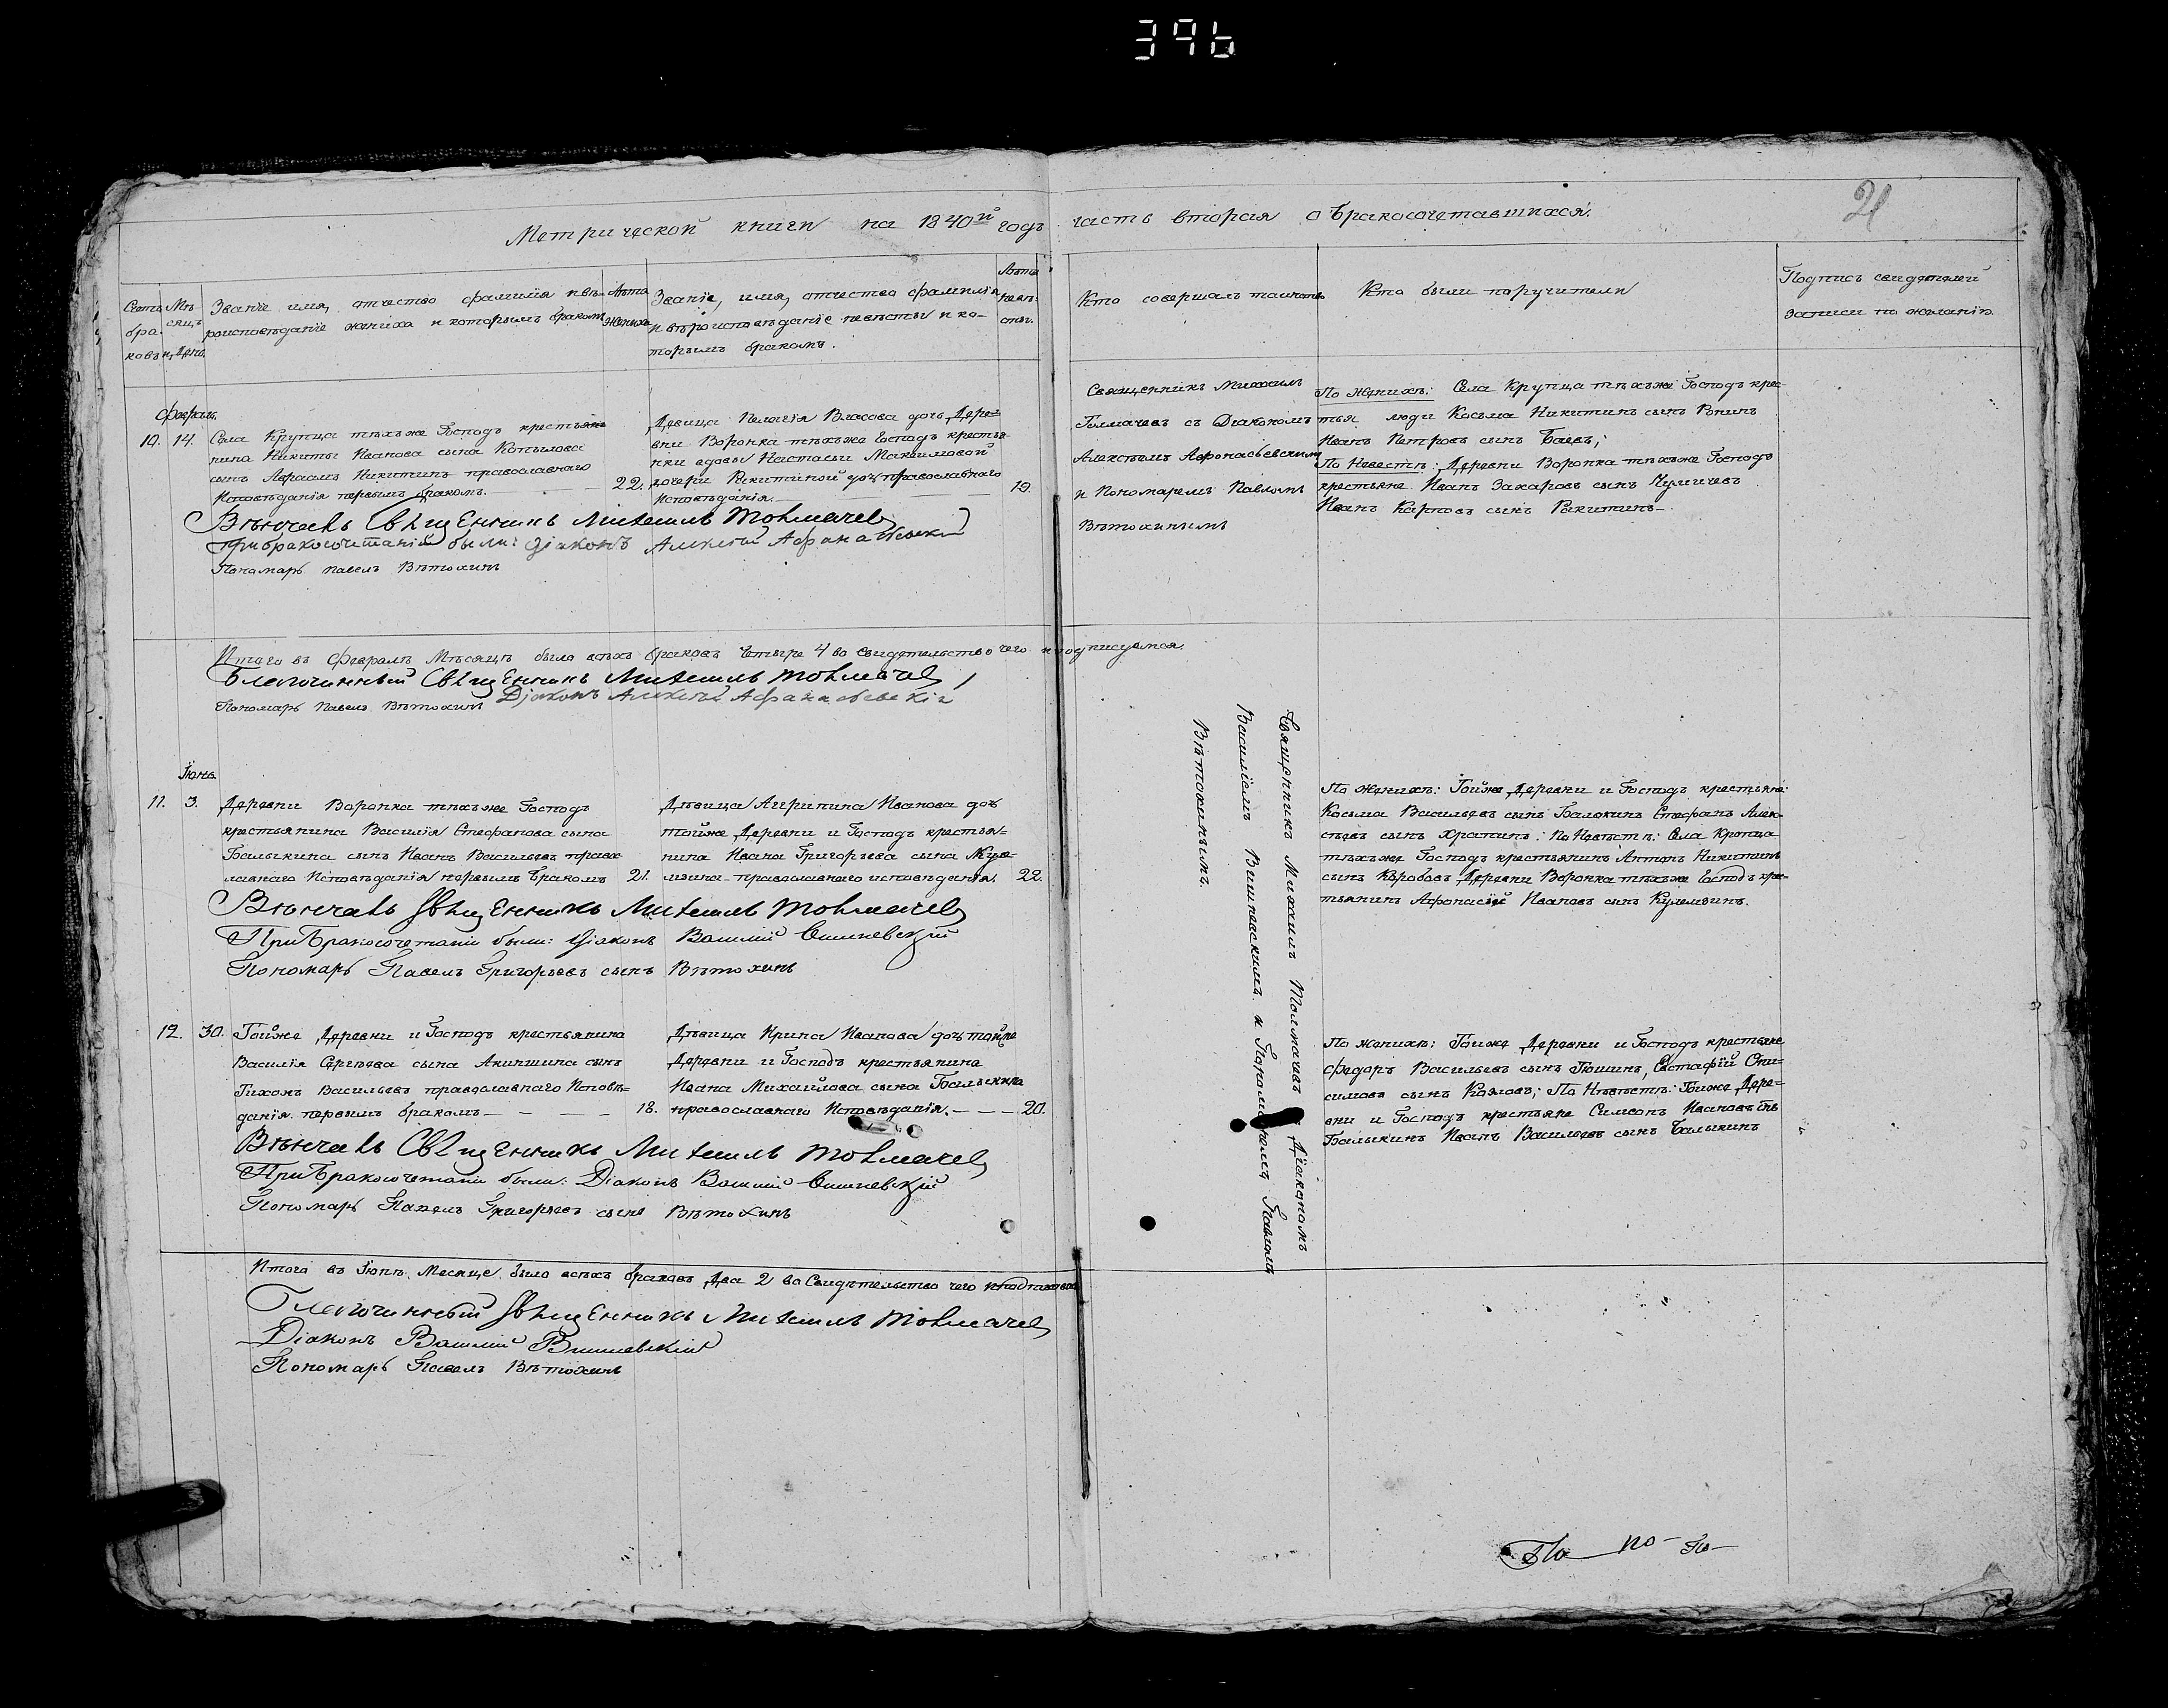 396
21
Метрической книги на 1840й годъ часть вторая о бракосочетавшихся.
Счетъ браковъ
Мѣсяцъ и День
Званіе, имя, отчество фамилія и вѣроисповѣданіе жениха и которымъ бракомъ
Лѣта жениха
Званіе, имя, отчество фамилія и вѣроисповѣданіе невѣсты и которымъ бракомъ.
Лѣта невѣсты.
Кто совершалъ таинство
Кто были поручители
Подпись свидетелей записи по желанію
Февраль.
10. 14. Села Крупца тѣхъже Господъ крестьянина Никиты Иванова сына Копылова
сынъ Герасимъ Никитинъ православнаго
Исповѣданія первымъ бракомъ. 22.
Дѣвица Пелагія Власова дочь Деревни Воронка тѣхъже Господъ крестьянки вдовы Настасьи Максимовой
дочери Никитиной дочь православнаго
исповѣданія. 19.
Священникъ Михаилъ
Толмачевъ съ Діакономъ
Алексѣемъ Афонасьевскимъ
и Пономаремъ Павломъ
Вѣтохинымъ
По Женихѣ: Села Крупца тѣхъже Господъ крес-
тья люди Косьма Никитинъ сынъ
Иванъ Петровъ сынъ Баевъ;
По Невестѣ: Деревни Воронка тѣхъже Господъ
крестьяне Иванъ Захаровъ сынъ Чумичевъ
Иванъ Карповъ сынъ Ракитинъ
Вѣнчалъ Священникъ Михаилъ Толмачевъ
При бракосочетаніи были: Діаконъ Алексѣй Афанасьевскій
Пономарь Павелъ Вѣтохинъ
Итого въ Февралѣ Мѣсяцѣ было всѣхъ браковъ Четыре 4 во свидетельство чего и подписуемся.
Благочинный Священникъ Михаилъ Толмачевъ
Діаконъ Алексѣй Афанасьевскій
Пономарь Павелъ Вѣтохинъ
Іюнь.
11. 3. Деревни Воронка тѣхъже Господъ
крестьянина Василія Стефанова сына
Балыкина сынъ Иванъ Васильевъ право-
славнаго Исповѣданія первымъ бракомъ 21.
Дѣвица Агрипина Иванова дочь
тойже Деревни и Господъ крестья=
нина Ивана Григорьева сына Куле-
мзина православнаго исповѣданія. 22.
Священникъ Михаилъ Толмачевъ Діакономъ
Василіемъ Вишневскимъ и Пономаремъ Павломъ
Вѣтохинымъ.
По Женихѣ: Тойже Деревни и Господъ крестьяне
Косьма Васильевъ сынъ Балыкинъ Стефанъ Алек-
сѣевъ сынъ Храпинъ: По Невѣстѣ: Села Крупца
тѣхъже Господъ крестьянинъ Антонъ Никитинъ
сынъ Коробовъ Деревни Воронка тѣхъже Господъ крес-
тьянинъ Афонасій Ивановъ сынъ Кулемзинъ.
Вѣнчалъ Священникъ Михаилъ Толмачевъ
При Бракосочетаніи были: Діаконъ Василій Вишневскій
Пономарь Павелъ Григорьевъ сынъ Вѣтохинъ
12. 30. Тойже Деревни и Господъ крестьянина
Василія Сергѣева сына Акиншина сынъ
Тихонъ Васильевъ православнаго Исповѣ-
данія первымъ бракомъ 18.
Дѣвица Ирина Иванова дочь тойже
Деревни и Господъ крестьянина
Ивана Михайлова сына Балыкина
православнаго Исповѣданія. 20.
По женихѣ: Тойже Деревни и Господъ крестьяне
Федоръ Васильевъ сынъ Гюшинъ, Евстафій Они-
симовъ сынъ Козловъ; По Невѣстѣ: Тойже Дере=
вни и Господъ крестьяне Симеонъ Ивановъ сынъ
Балыкинъ Иванъ Васильевъ сынъ Балыкинъ
Вѣнчалъ Священникъ Михаилъ Толмачевъ
При Бракосочетаніи были: Діаконъ Василій Вишневскій
Пономарь Павелъ Григорьевъ сынъ Вѣтохинъ
Итого въ Іюнѣ Месяце было всѣхъ браковъ Два 2 во Свидѣтельство чего и подписуемся
Благочинный Священникъ Михаилъ Толмачевъ
Діаконъ Василій Вишневскій
Пономарь Павелъ Вѣтохинъ
По по По